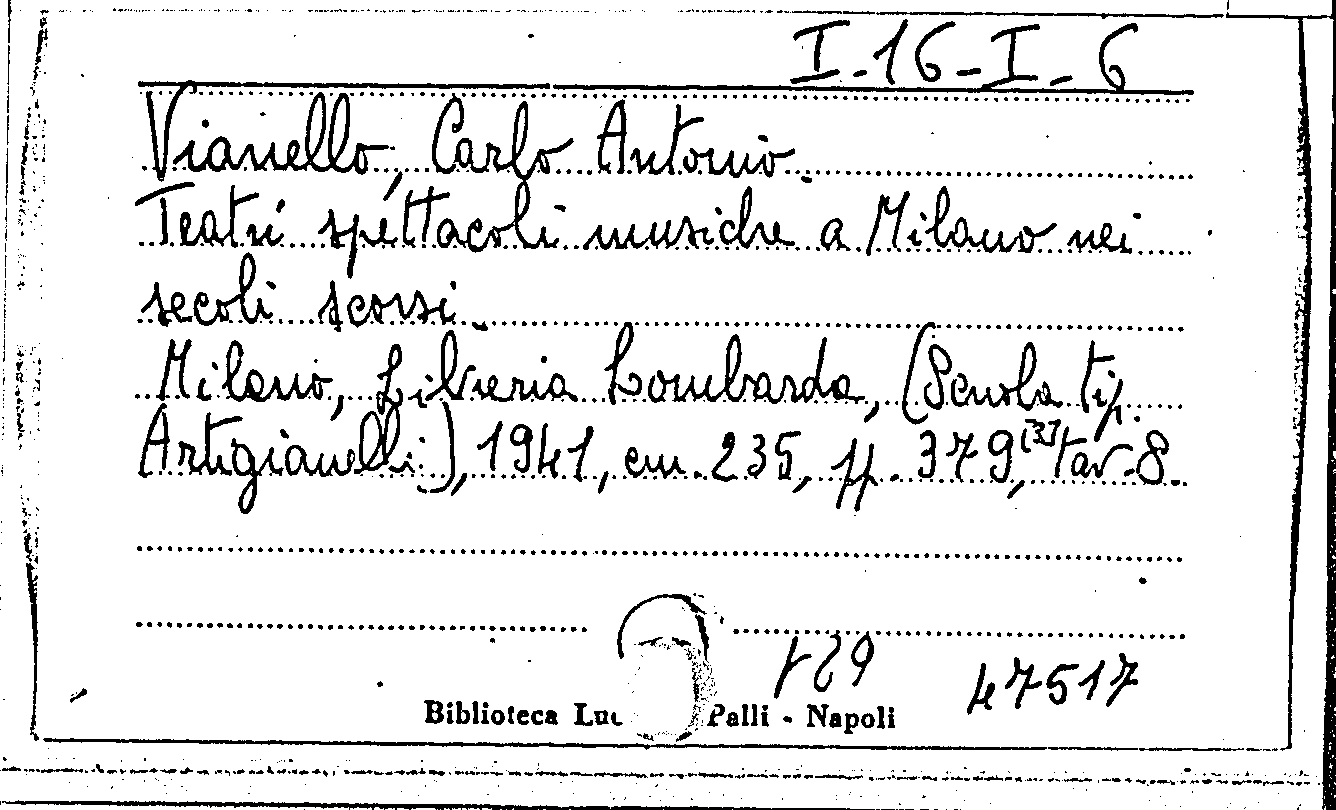 I-16-I-6
Vianello, Carlo Antonio.
Teatri spettacoli musiche a Milano nei
secoli scorsi.
Milano, Libreria Lombarda, (Scuola tip.
Artigianelli), 1941, cm. 235, pp. 379,[3] tav. 8.
47517
Biblioteca Palli - Napoli